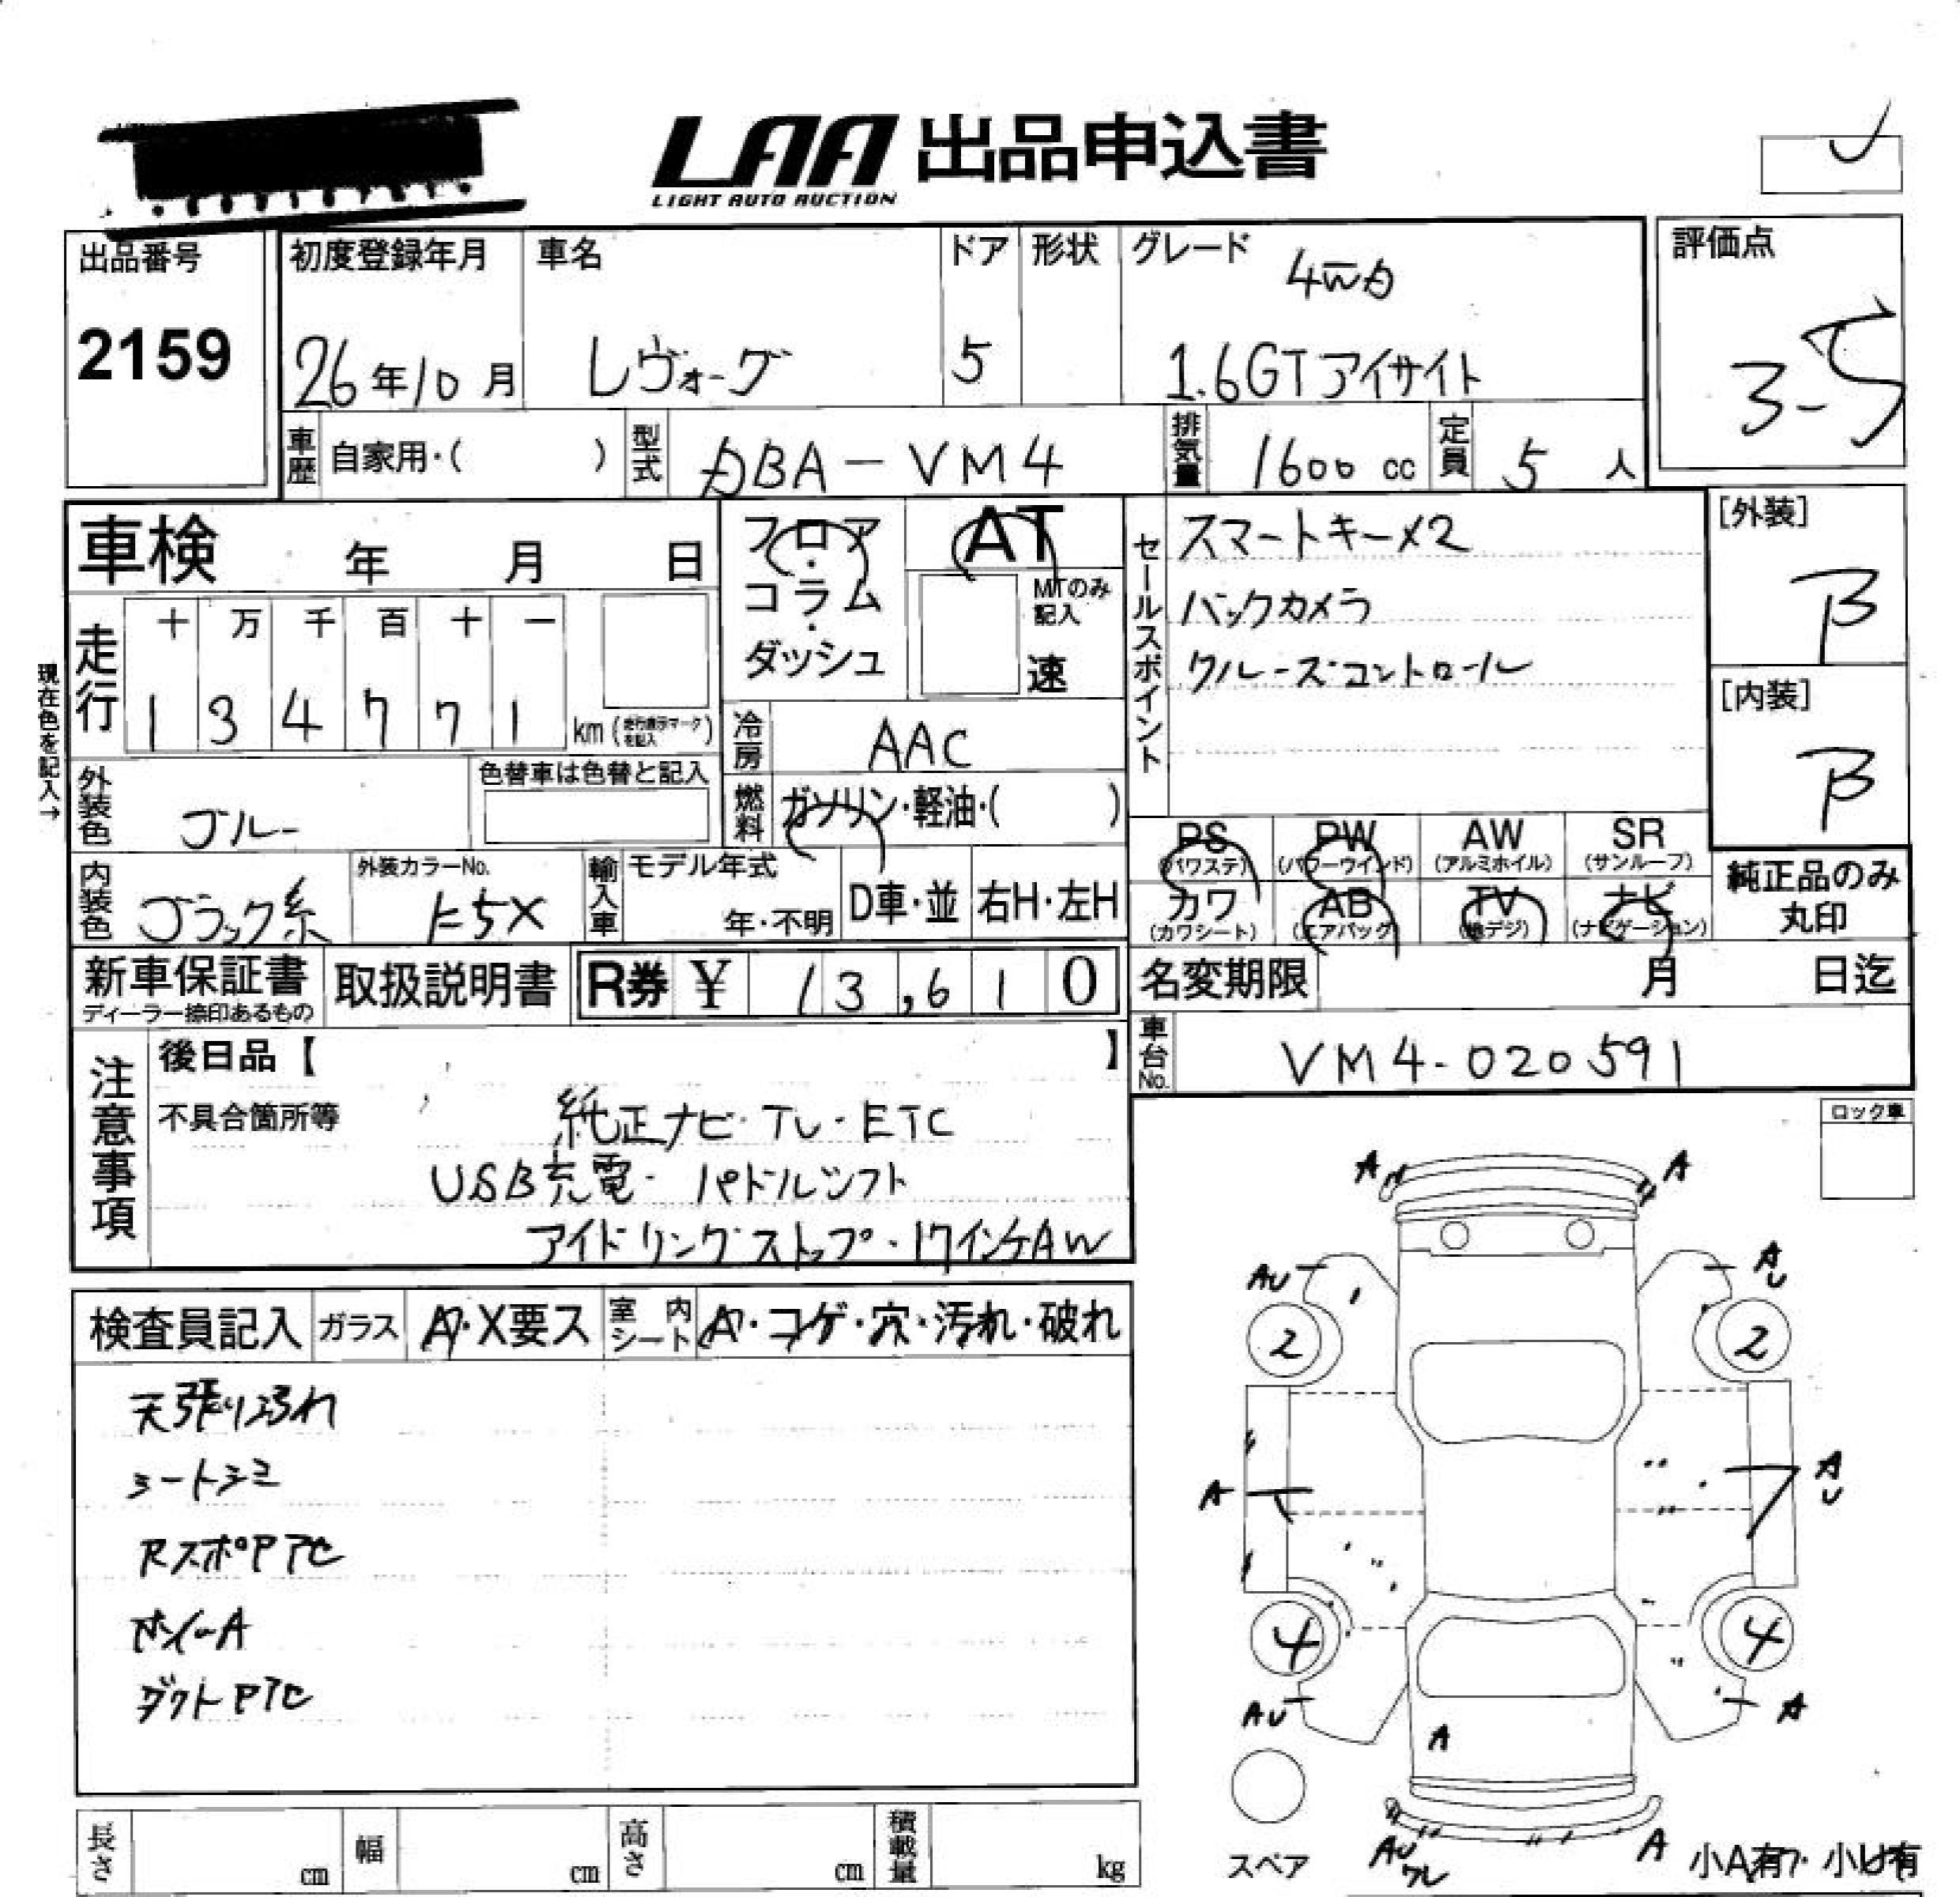 LAA 出品申込書
LIGHT AUTO AUCTION
出品番号
2159
初度登録年月
26年10月
車名
レヴォーグ
ドア
5
形状
グレード
4WD
1.6GTアイサイト
評価点
3-5
車歴
自家用・( )
型式
DBA-VM4
排気量
1600 cc
定員
5 人
車検 年 月 日
フロア・コラム・ダッシュ
AT
MTのみ記入
速
セールスポイント
スマートキー×2
バックカメラ
クルーズコントロール
[外装]
B
[内装]
B
現在色を記入→
走行
十 万 千 百 十 一
1 3 4 7 7 1 km(走行表示マークを記入)
冷房
AAC
外装色
ブルー
色替車は色替と記入
燃料
ガソリン・軽油・( )
PS (パワステ)
PW (パワーウインド)
AW (アルミホイル)
SR (サンルーフ)
カワ (カワシート)
AB (エアバッグ)
TV (地デジ)
ナビ (ナビゲーション)
純正品のみ
丸印
内装色
ブラック系
外装カラーNo.
E5X
輸入車
モデル年式
年・不明
D車・並
右H・左H
新車保証書
ディーラー捺印あるもの
取扱説明書
R券 ¥ 13,610
名変期限 月 日迄
車台No.
VM4-020591
注意事項
後日品【 】
不具合箇所等
純正ナビ・TV・ETC
USB充電・パドルシフト
アイドリングストップ・17インチAW
ロック車
検査員記入
ガラス
A・X要ス
室内シート
A・コゲ・穴・汚れ・破れ
天張り汚れ
シートシミ
RスポPTC
ホイールA
ダクトPTC
A
A
AU
AU
2
2
A
AU
4
4
AU
A
A
スペア
AU
ワレ
A
小A有・小U有
長さ cm
幅 cm
高さ cm
積載量 kg